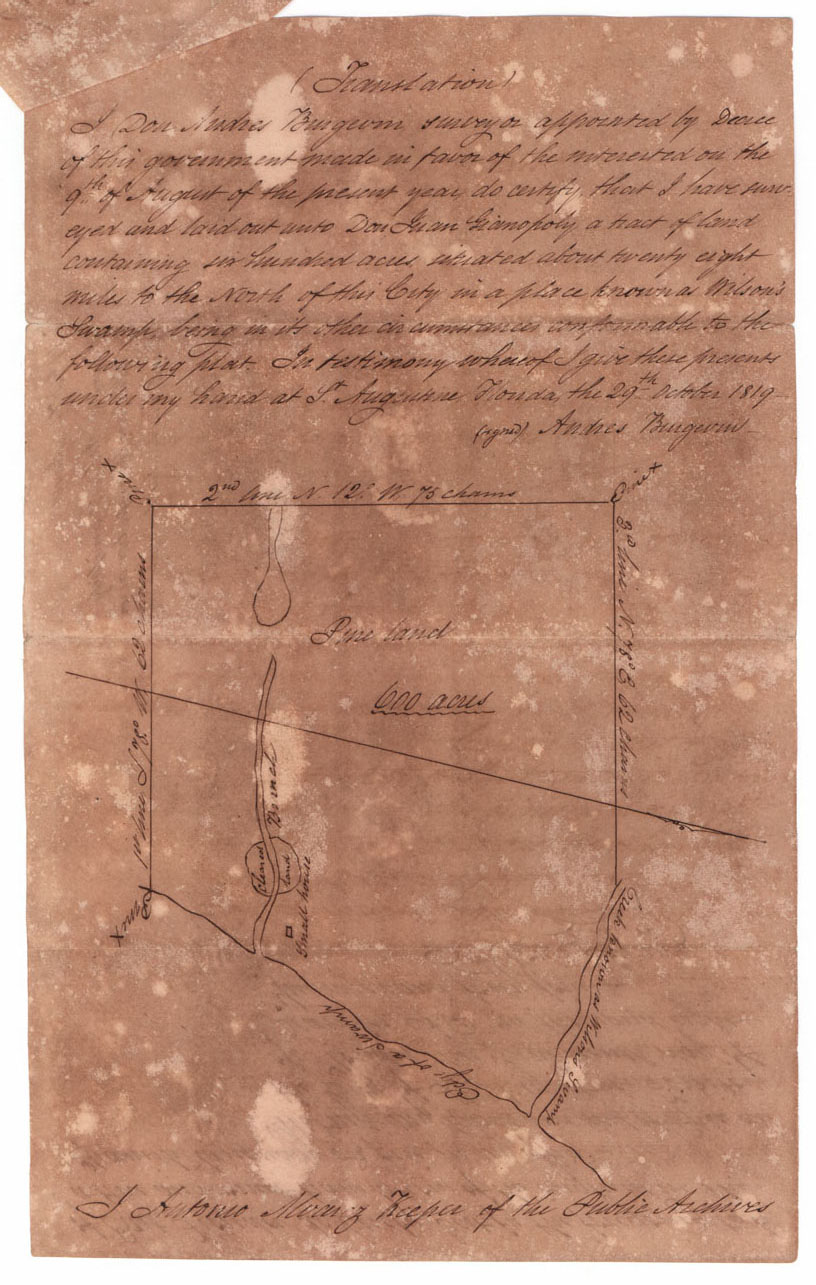 (Translation)
I Don Andres Burgevin surveyor appointed by Decree
of this government made in favor of the interested on the
9th of August of the present year, do certify, that I have surv-
eyed and laid out unto Don Juan Gianopoly, a tract of land
containing six hundred acres, situated about twenty eight
miles to the North of this City, in a place known as Wilson's
Swamp, being in its other circumstances conformable to the
following plat. In testimony whereof I give these presents
under my hand at St Augustine Florida, the 29th October 1819
(signed) Andres Burgevin
Pine X
2nd line N. 12° W 75 chains
Pine X
1st line S. 78° W 62 chains
3d line N. 78° E 62 chains
Pine land
600 acres
Branch
Cleared
land
Small house
Pine X
Edge of a Swamp
Creek known as Wilsons Swamp
I Antonio Alvarez Keeper of the Public Archives